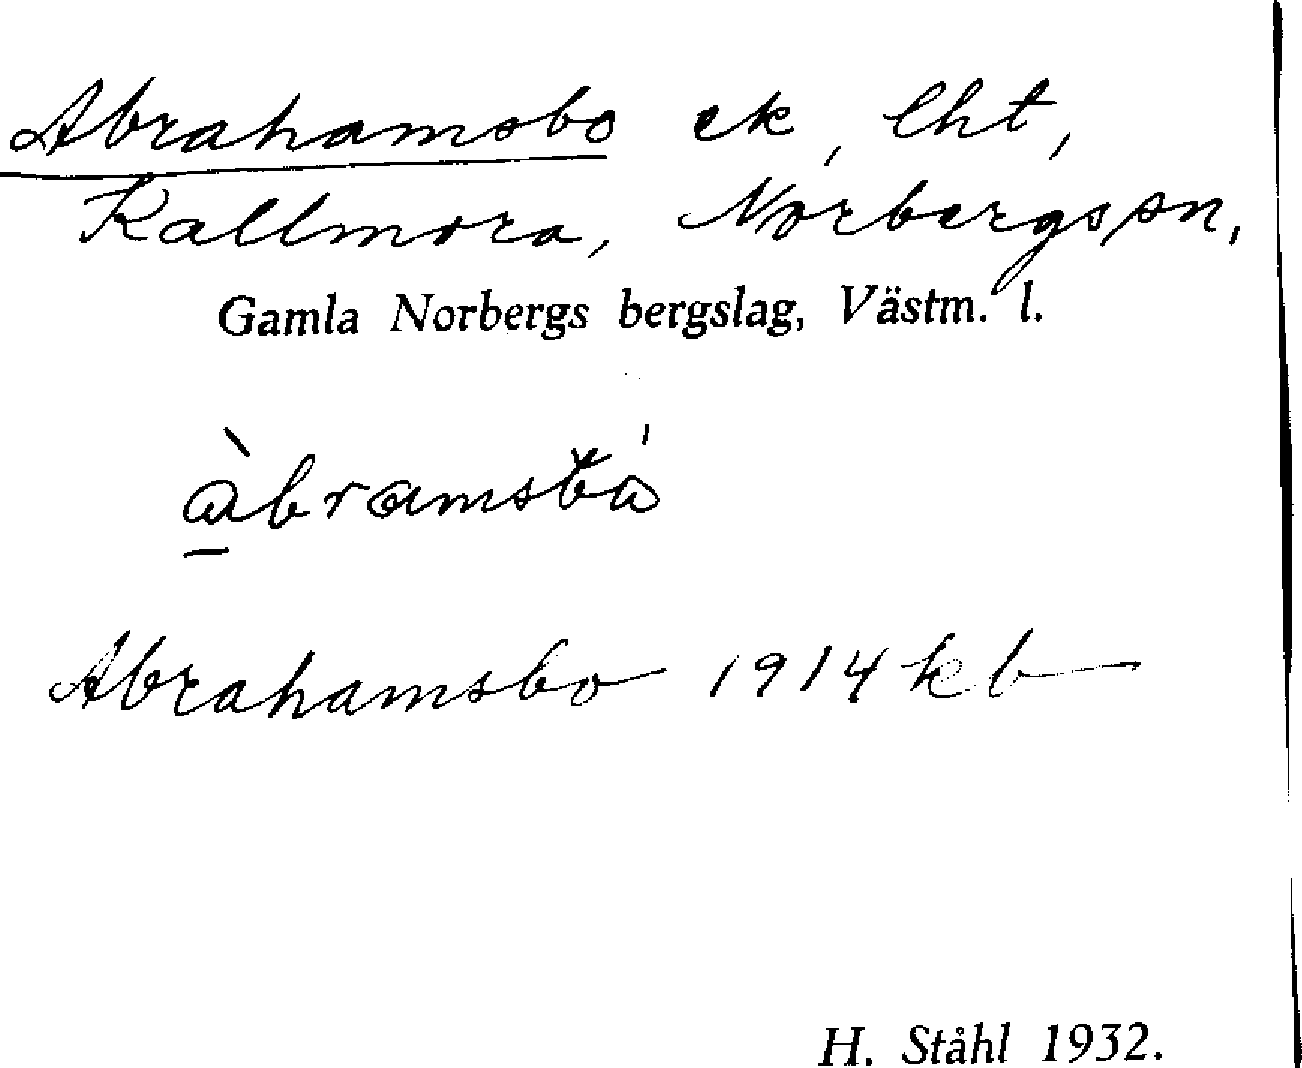 Abrahamsbo ek, lht,
Kallmora, Norbergs sn,
Gamla Norbergs bergslag, Västm. l.
àbramsbá
Abrahamsbo 1914 kb
H. Ståhl 1932.